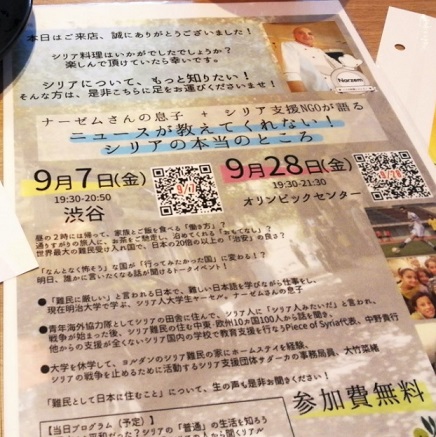 本日はご来店、誠にありがとうございました!
シリア料理はいかがでしたでしょうか?
楽しんで頂けていたら幸いです。
シリアについて、もっと知りたい!
そんな方は、是非こちらに足をお運びくださいませ!
Narzem
ナーゼムさんの息子 + シリア支援NGOが語る
ニュースが教えてくれない!
シリアの本当のところ
9月7日(金)
19:30-20:50
渋谷
9/7
9月28日(金)
19:30-21:30
オリンピックセンター
9/28
昼の2時には帰って、家族とご飯を食べる「働き方」?
通りすがりの旅人に、お茶をご馳走し、泊めてくれる「おもてなし」?
世界最大の難民受け入れ国で、日本の20倍以上の「治安」の良さ?
「なんとなく怖そう」な国が「行ってみたかった国」に変わる!?
明日、誰かに言いたくなる話が聞けるトークイベント!
●「難民に厳しい」と言われる日本で、難しい日本語を学びながら仕事をし、
現在明治大学で学ぶ、シリア人大学生ヤーセル。ナーゼムさんの息子
●青年海外協力隊としてシリアの田舎に住んで、シリア人に「シリア人みたいだ」と言われ、
戦争が始まった後、シリア難民の住む中東・欧州10カ国100人から話を聞き、
他からの支援が全くないシリア国内の学校で教育支援を行うPiece of Syria代表、中野貴行
●大学を休学して、ヨルダンのシリア難民の家にホームステイを経験。
シリアの戦争を止めるために活動するシリア支援団体サダーカの事務局員、大竹菜緒
「難民として日本に住むこと」について、生の声も是非お聞きください!
参加費無料
【当日プログラム(予定)】
シリアの「普通」の生活を知ろう